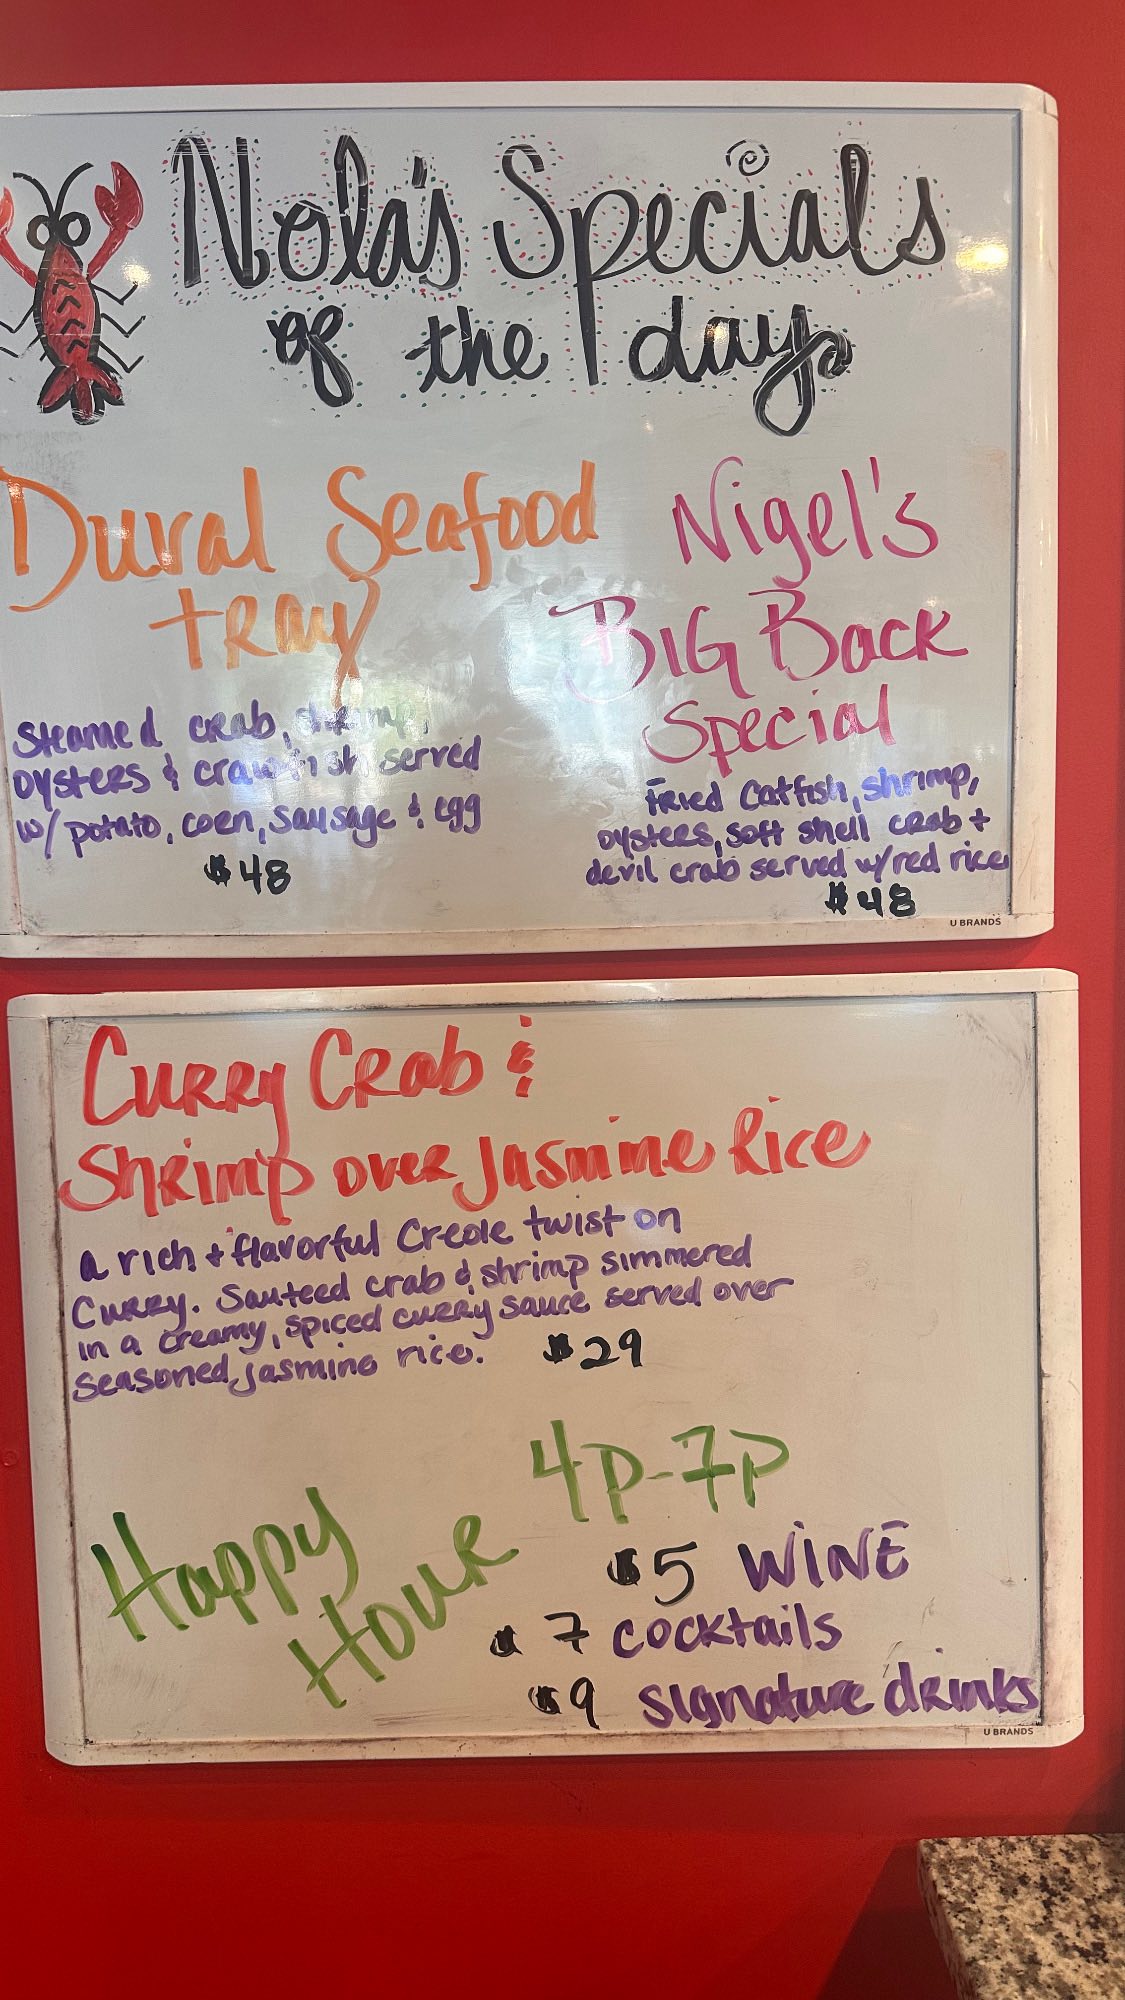 Nola's Specials
of the day
Duval Seafood
tray
Steamed crab, shrimp,
oysters & crawfish served
w/ potato, corn, sausage & egg
$48
Nigel's
BIG Back
Special
Fried Catfish, shrimp,
oysters, soft shell crab +
devil crab served w/ red rice
$48
U BRANDS
Curry Crab &
Shrimp over Jasmine Rice
A rich + flavorful Creole twist on
Curry. Sauteed crab & shrimp simmered
in a creamy, spiced curry sauce served over
seasoned jasmine rice. $29
Happy
Hour
4P-7P
$5 WINE
$7 cocktails
$9 signature drinks
U BRANDS